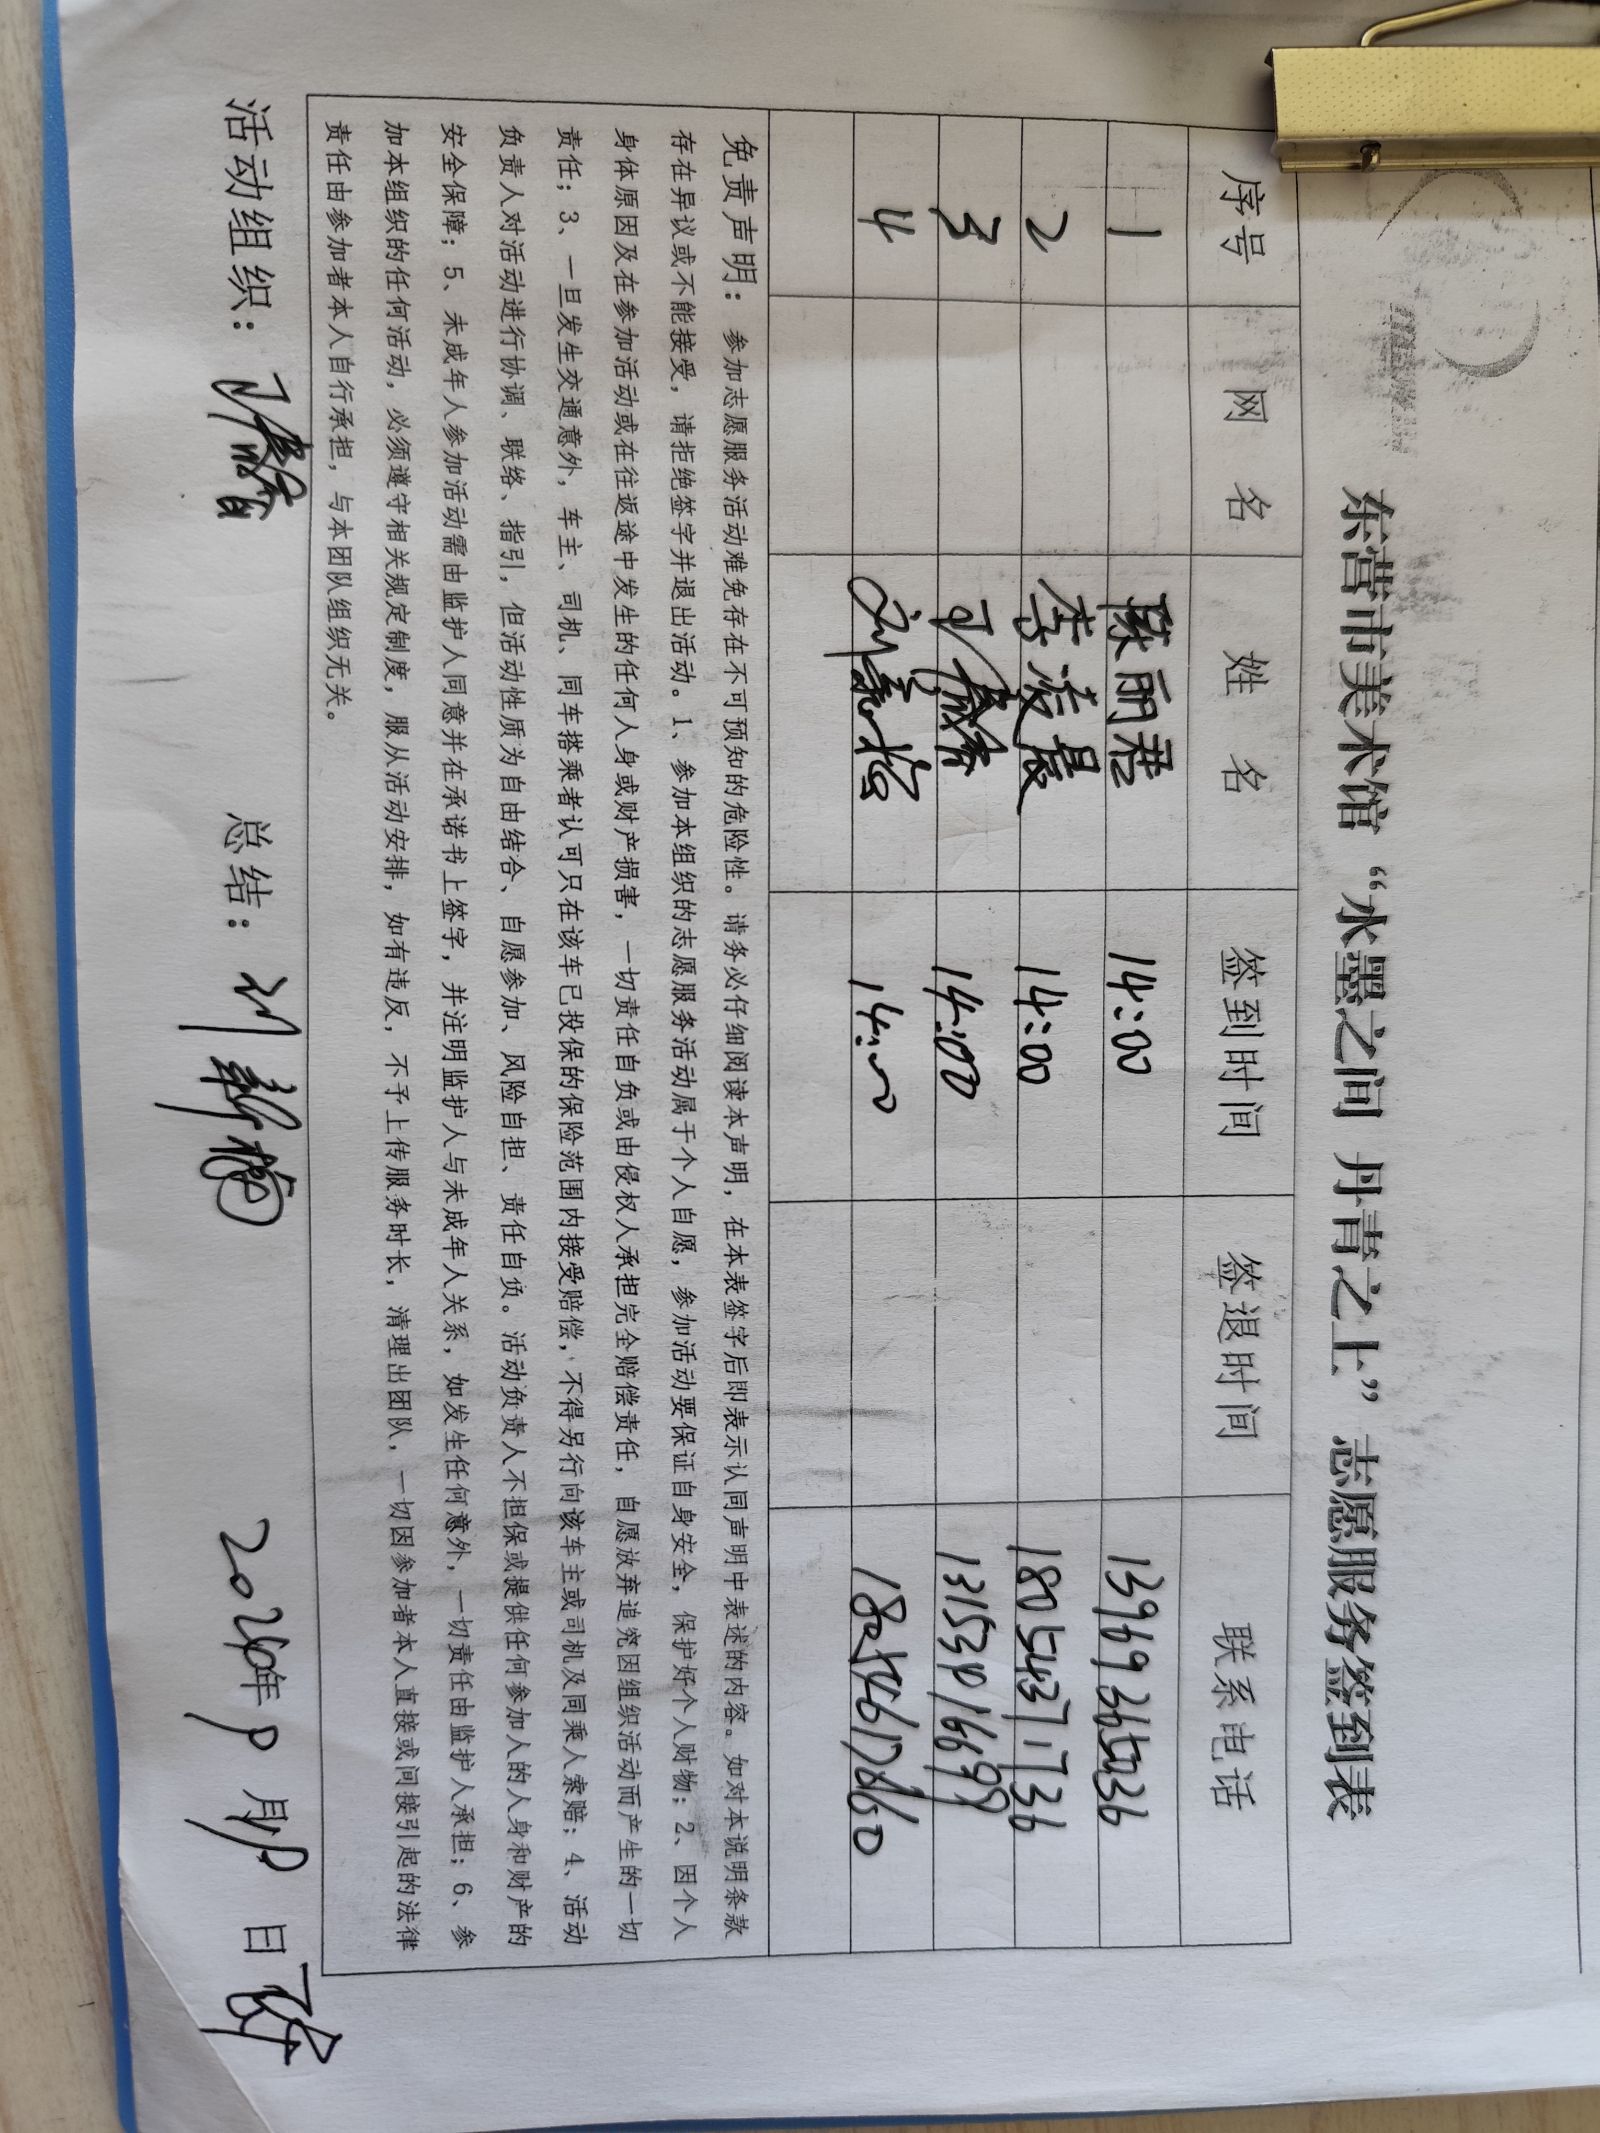 东营市美术馆“水墨之间 丹青之上”志愿服务签到表
序号 网 名 姓 名 签到时间 签退时间 联系电话
1 陈丽君 14:00 13969365036
2 李凌晨 14:00 18054371736
3 14:00
4 14:00
免责声明：参加志愿服务活动难免存在不可预知的危险性。请务必仔细阅读本声明，在本表签字后即表示认同声明中表述的内容。如对本说明条款
存在异议或不能接受，请拒绝签字并退出活动。1、参加本组织的志愿服务活动属于个人自愿，参加活动要保证自身安全，保护好个人财物；2、因个人
身体原因及在参加活动或在往返途中发生的任何人身或财产损害，一切责任自负或由侵权人承担完全赔偿责任，自愿放弃追究因组织活动而产生的一切
责任；3、一旦发生交通意外，车主、司机、同车搭乘者认可只在该车已投保的保险范围内接受赔偿，不得另行向该车主或司机及同乘人索赔；4、活动
负责人对活动进行协调、联络、指引，但活动性质为自由结合、自愿参加、风险自担、责任自负。活动负责人不担保或提供任何参加人的人身和财产的
安全保障；5、未成年人参加活动需由监护人同意并在承诺书上签字，并注明监护人与未成年人关系，如发生任何意外，一切责任由监护人承担；6、参
加本组织的任何活动，必须遵守相关规定制度，服从活动安排，如有违反，不予上传服务时长，清理出团队，一切因参加者本人直接或间接引起的法律
责任由参加者本人自行承担，与本团队组织无关。
活动组织： 总结： 2026年 月 日